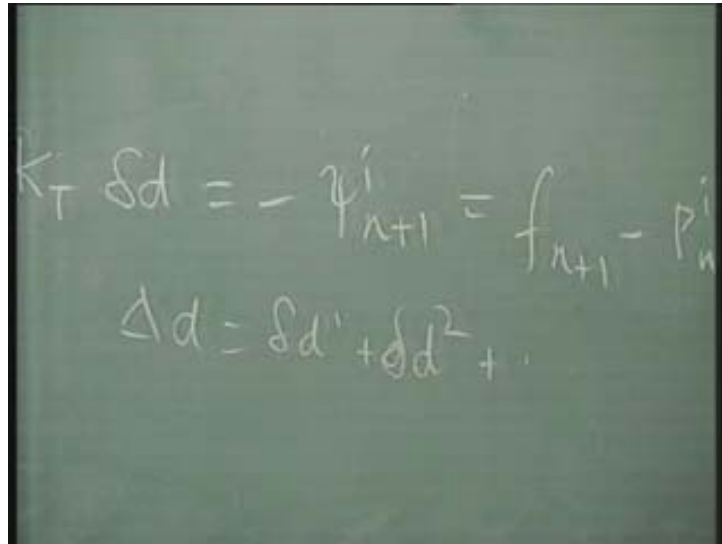 K_T δd = - ψ^i_{n+1} = f_{n+1} - P^i_n
Δd = δd^1 + δd^2 + .